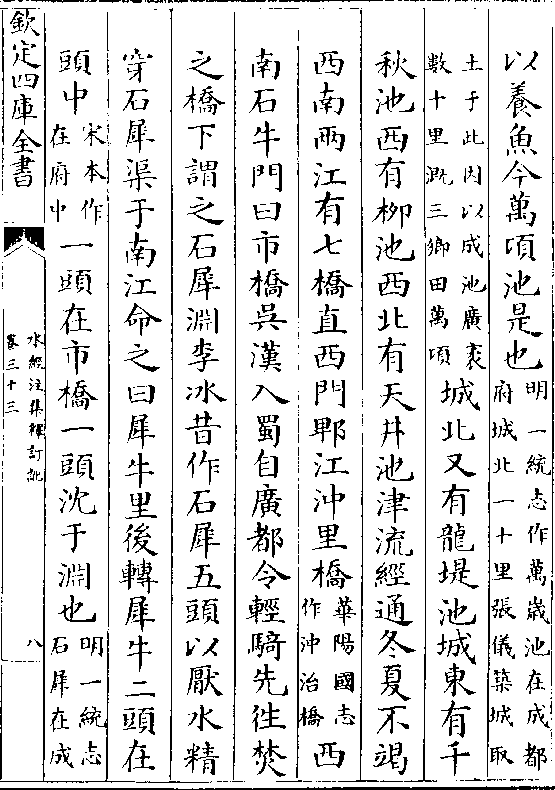 以養魚今萬頃池是也明一統志作萬歲池在成都
府城北一十里張儀築城取
土于此因以成池廣袤
數十里溉三鄉田萬頃城北又有龍堤池城東有千
秋池西有柳池西北有天井池津流經通冬夏不竭
西南兩江有七橋直西門郫江沖里橋華陽國志
作沖治橋西
南石牛門曰市橋吳漢入蜀自廣都令輕騎先徃焚
之橋下謂之石犀淵李冰昔作石犀五頭以厭水精
穿石犀渠于南江命之曰犀牛里後轉犀牛二頭在
頭中宋本作
在府中一頭在市橋一頭沈于淵也明一統志
石犀在成
欽定四庫全書
水經注集釋訂訛
卷三十三
八